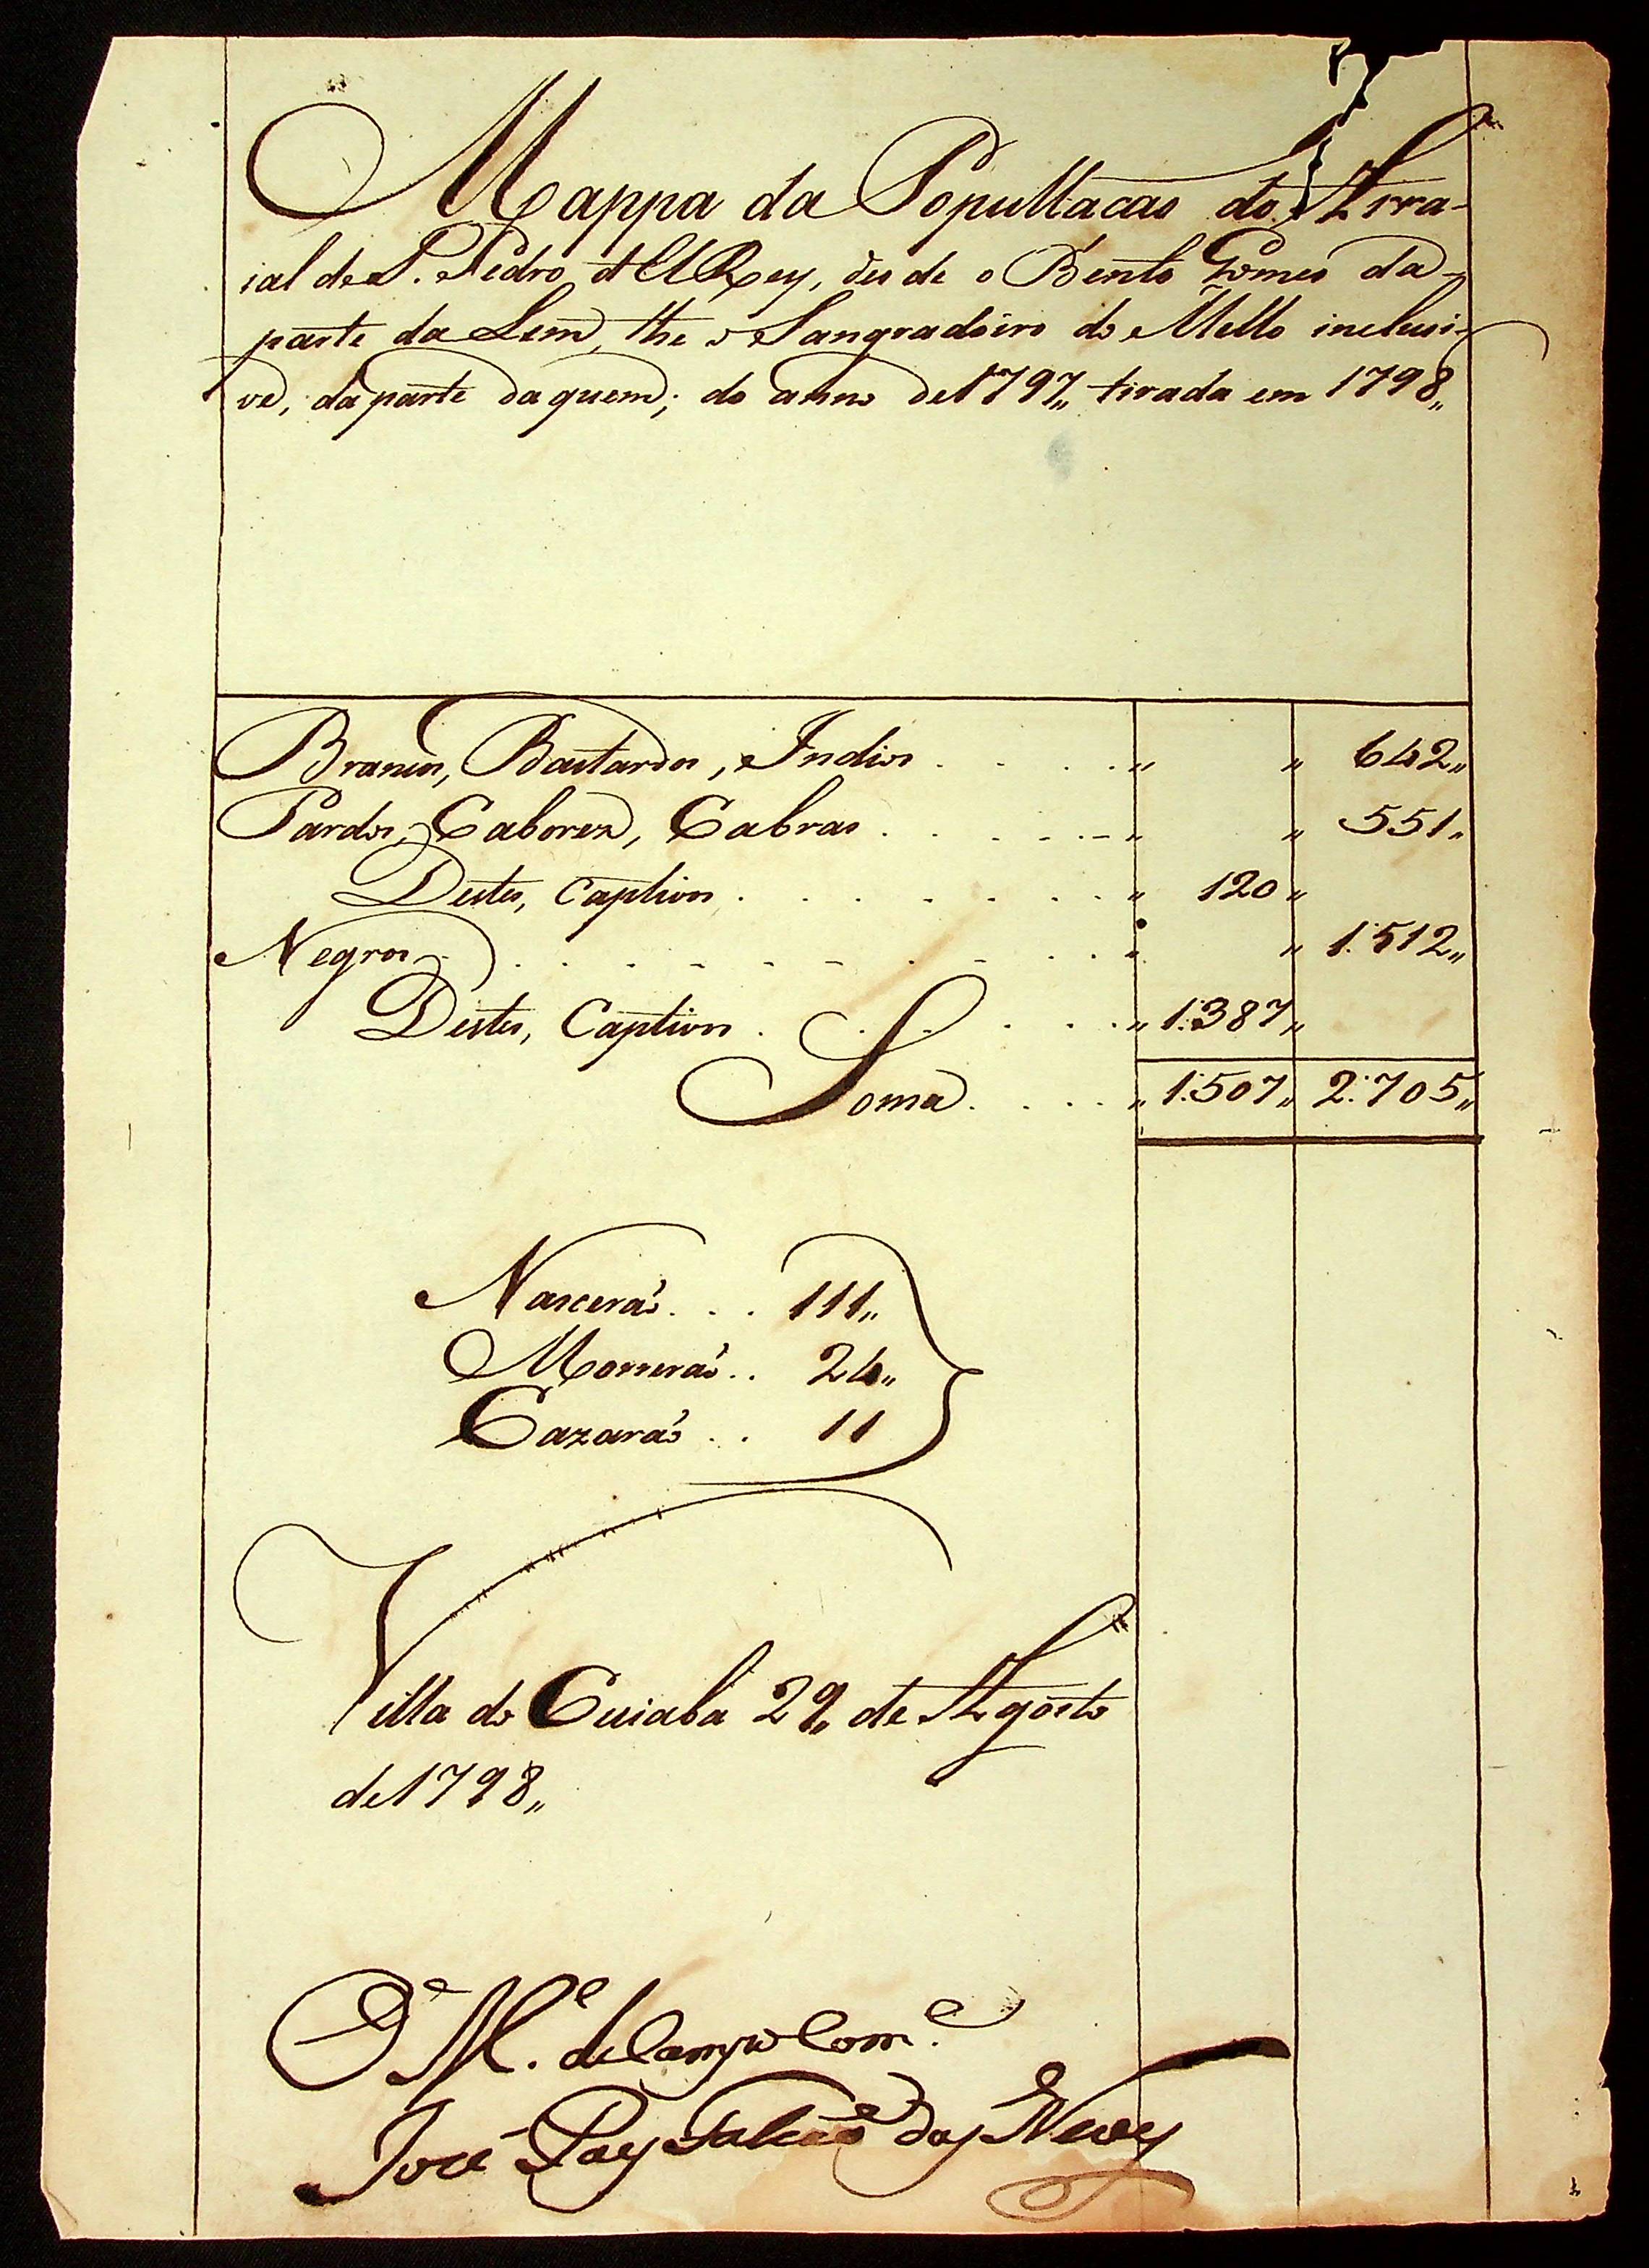 Mappa da Popullacaõ do Arra-
ial de S. Pedro d'ElRey, des de o Bento Gomes da
parte da Lem, the o Sangradoiro do Mello inclusi-
ve, da parte daquem; do anno de 1797,, tirada em 1798,,
Brancos, Bastardos, Indios . . . . ,, ,, 642,,
Pardos, Cabores, Cabras . . . . . ,, ,, 551,,
Destes, Captivos . . . . . . . ,, 120 ,,
Negros . . . . . . . . . . . ,, ,, 1:512,,
Destes, Captivos . . . . . . ,, 1:387,,
Soma . . . . ,, 1:507,, 2:705,,
Nascerаõ . . . 111,,
Morreraõ . . 24,,
Cazaraõ . . 11
Villa do Cuiabá 29,, de Agosto
de 1798,,
O M.e de Campo Com.e
José Paes Falcaõ das Neves